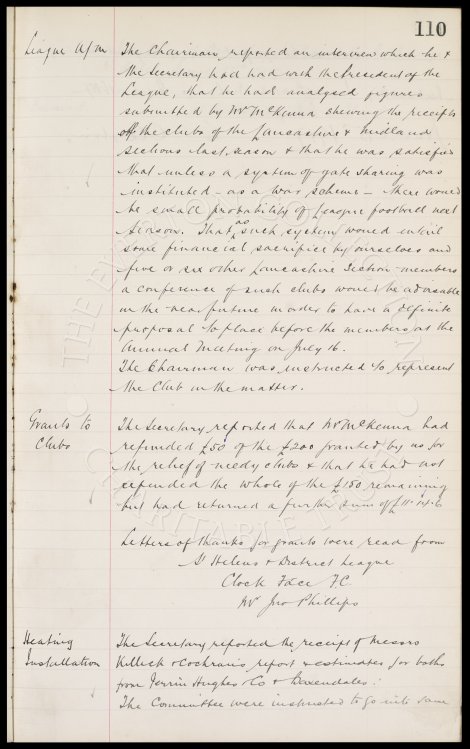 110
League A/m The Chairman reported an interview which he &
the Secretary had had with the President of the
League, that he had analysed figures
submitted by Mr McKenna shewing the receipts
of the clubs of the Lancashire & Midland
sections last season & that he was satisfied
that unless a system of gate sharing was
instituted - as a war scheme - there would
be small probability of League football next
season. That as such system would entail
some financial sacrifice by ourselves and
five or six other Lancashire Section members
a conference of such clubs would be advisable
in the near future in order to have a definite
proposal to place before the members at the
Annual Meeting on July 16.
The Chairman was instructed to represent
the Club in the matter.
Grants to The Secretary reported that Mr McKenna had
Clubs refunded £50 of the £200 granted by us for
the relief of needy clubs & that he had not
expended the whole of the £150 remaining
but had returned a further sum of £11.14.6
Letters of thanks for grants were read from
St Helens & District League
Clock Face F.C.
Mr Jno Phillips
Heating The Secretary reported the receipt of Messrs
Installation Killick & Cochran's report & estimates for baths
from Ferrin Hughes & Co & Baxendales.
The Committee were instructed to go into same